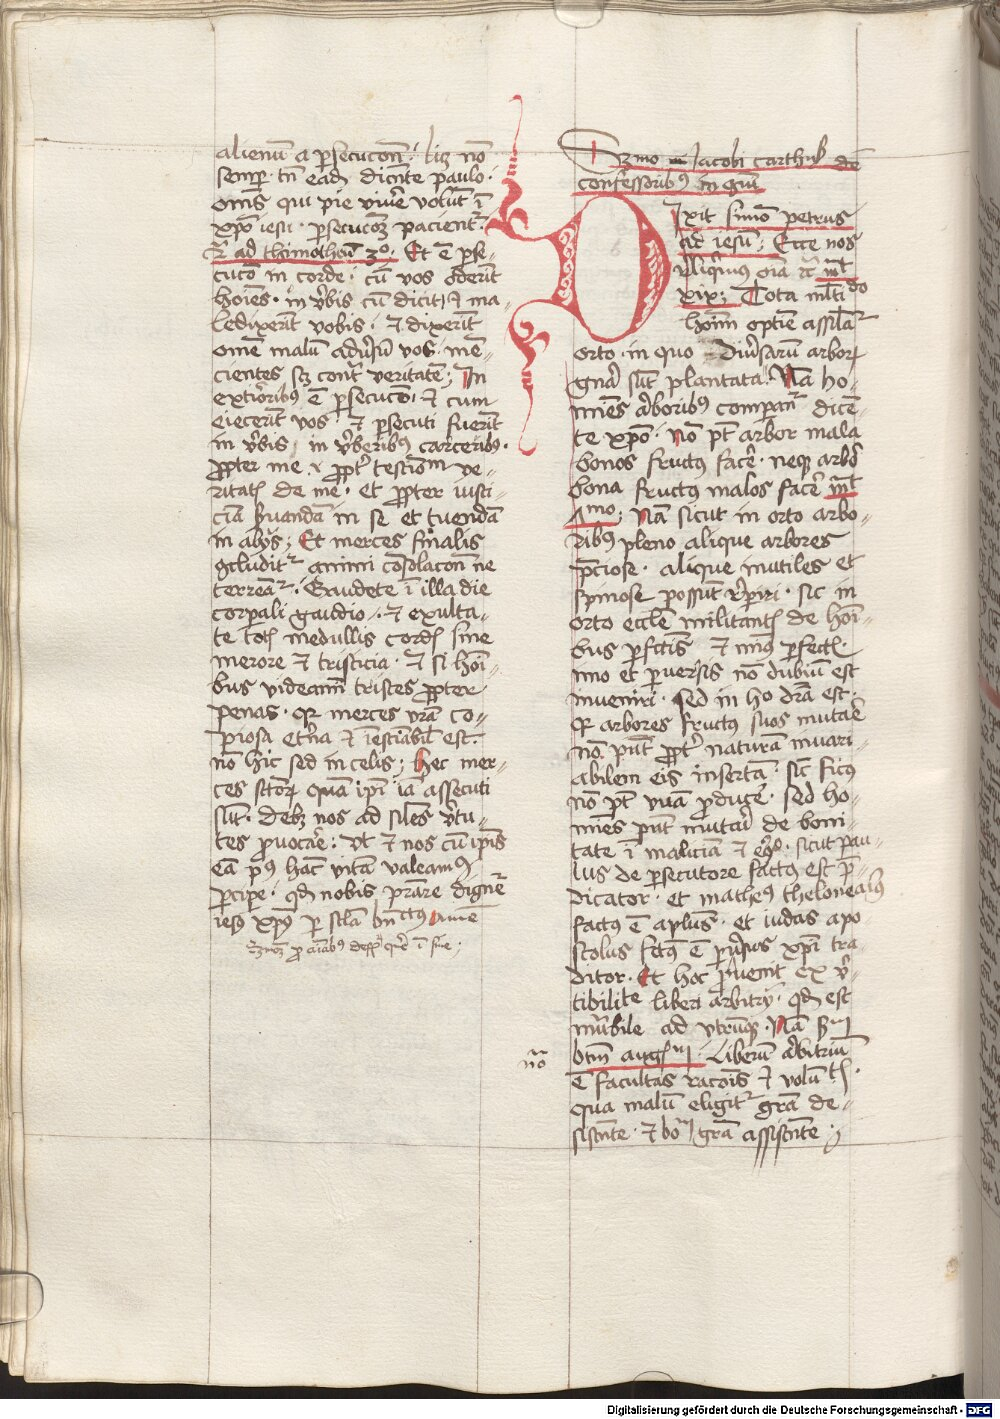 alienū a ꝑsecucōn̄. licꝫ nō
semp. tn̄ eadē dicēte paulo.
om̄s qui pie viue͛ volūt ī
xp̄o iesu. ꝑsecucōꝫ pacient᷑.
ad thimotheū 3º. Et ē ꝑse-
cucō in corde. cū vos oderīt
hoīes. in v̓bis cū dicit᷑ ⁊ ma-
ledixerīt vobis. ⁊ dixerīt
om̄e malū adu̓sū vos. mē-
cientes scꝫ cont͛ veritatē; In
ext̓ioribꝰ ē ꝑsecucō. ⁊ cum
eiecerīt vos. ⁊ ꝑsecuti fuerīt
in v̓bis, in v̓beribꝰ carceribꝰ.
ꝓpter me ⁊ ꝓpt͛ testiōm ve-
ritatꝭ de me. et ꝓpter iusti-
ciā ẜuandā in se et tuendā
in alijs; Et merces finalis
ꝯcludit᷑ animi cōsolacōn ne
terreāt᷑. Gaudete ī illa die
corꝑali gaudio. ⁊ exulta-
te totꝭ medullis cordꝭ sine
merore ⁊ tristicia. ⁊ si hoī-
bus videamī tristes ꝓpter
penas. qꝛ merces vr̄a co-
piosa et̓na ⁊ īestiabil̄ est.
nō hic sed in celis; hec mer-
ces sctōꝝ quā ip̄i iā assecuti
sūt. debꝫ nos ad siles v̓tu-
tes ꝓuocar̄e. vt ⁊ nos cū ip̄is
eā pꝰ hāc vitā valeamꝰ
ꝑcipe. qd̄ nobis p̄rare dignet᷑
iesꝰ xp̄ꝰ ꝑ scl̄a bn̄dctꝰ amē
Sermo Jacobi Carthuꝭ de
confessoribꝰ in gn̄i
Dixit simō petrus
ad iesū; Ecce nos
reliq̓mus oīa ⁊c̄ mt
xix; Tota ml̄tido
hoīm optīe assilat᷑
orto. in quo diu̓sarū arboꝝ
gn̄a sūt plantata. Nā ho-
mīes arboribꝰ comparāt᷑ dicē-
te xp̄o. nō pt̄ arbor mala
bonos fructꝰ face͛. neqꝫ arbor
bona fructꝰ malos face͛ mt
Nā sicut in orto arbo-
ribꝰ pleno aliq̄ue arbores
p̄ciose. alique inutiles et
spinose possunt reperiri. sic in
orto eccl̄ie militantꝭ de hoī-
bus ꝑfctīs ⁊ minꝰ ꝑfectꝭ
imo et ꝑuersis nō dubiū est
inueniri. sed in ho dr̄a est.
qꝛ arbores fructꝰ suos mutare
nō pn̄t ꝓpt͛ naturā inuari-
abilem eis insertā. sic ficꝰ
nō pt̄ vuā ꝓduce͛. sed ho-
mīes pn̄t mutari de boni-
tate ī maliciā ⁊ eꝯº. sicut pau-
lus de ꝑsecutore factꝰ est p̄-
dicator. et matheꝰ theloneariꝰ
factꝰ ē apl̄us. et iudas apo-
stolus fctꝰ ē ꝑuersus xp̄i tra-
ditor. Et hoc ꝓuenit ex v̓-
tibilite liberi arbitrij. qd̄ est
mu̓bile ad vtrūqꝫ. Nā ẜm
btm̄ augꝰ. Liberū arbitriū
ē facultas racōis ⁊ volūtꝭ.
qua malū eligit᷑ gr̄a de-
sistente. ⁊ bom̄ gr̄a assistente;
Digitalisierung gefördert durch die Deutsche Forschungsgemeinschaft - DFG